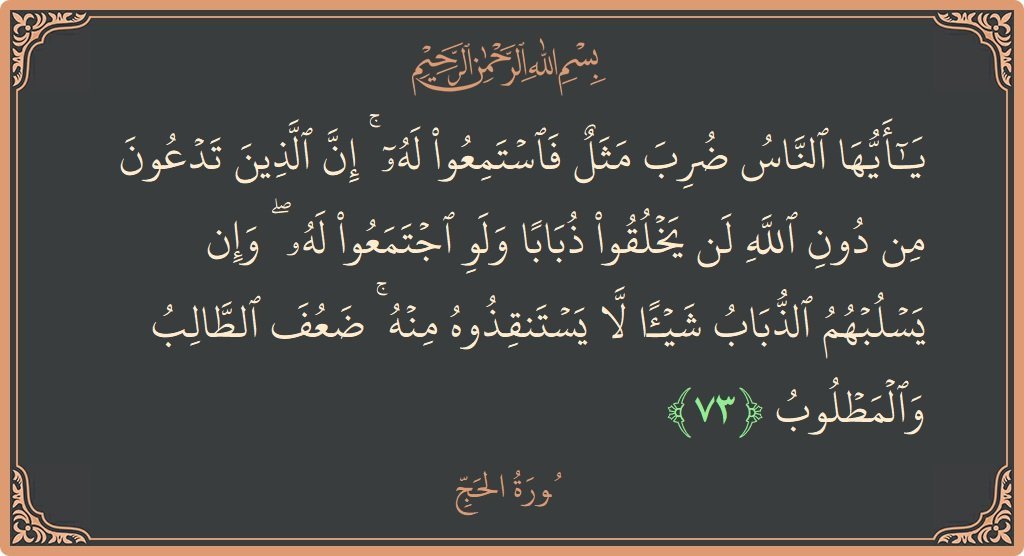 بِسْمِ اللهِ الرَّحْمٰنِ الرَّحِيْمِ
يَـٰٓأَيُّهَا ٱلنَّاسُ ضُرِبَ مَثَلٌ فَٱسْتَمِعُوا۟ لَهُۥٓ ۚ إِنَّ ٱلَّذِينَ تَدْعُونَ
مِن دُونِ ٱللَّهِ لَن يَخْلُقُوا۟ ذُبَابًا وَلَوِ ٱجْتَمَعُوا۟ لَهُۥ ۖ وَإِن
يَسْلُبْهُمُ ٱلذُّبَابُ شَيْـًٔا لَّا يَسْتَنقِذُوهُ مِنْهُ ۚ ضَعُفَ ٱلطَّالِبُ
وَٱلْمَطْلُوبُ ﴿٧٣﴾
سُورَةُ الحَجِّ